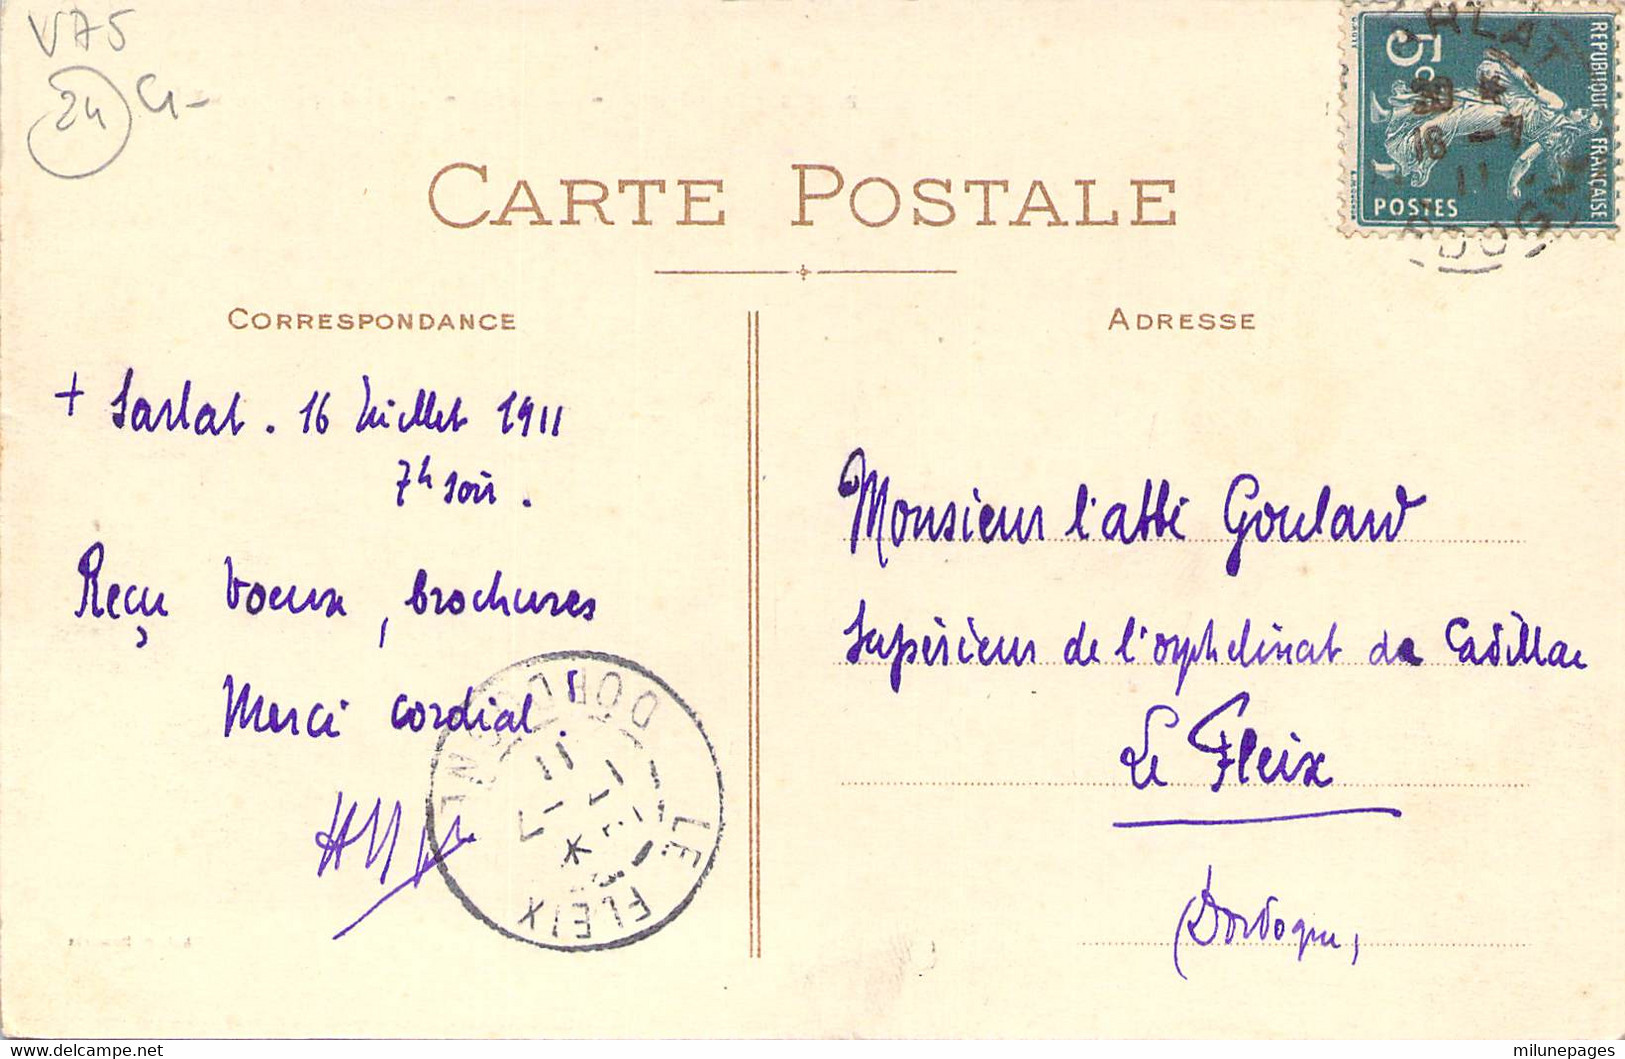 V75
24
CARTE POSTALE
5c
REPUBLIQUE FRANÇAISE
POSTES
16 - 7
11
CORRESPONDANCE
ADRESSE
+ Sarlat. 16 Juillet 1911
7h soir.
Reçu voeux, brochures
Merci cordial
DORDOGNE
11
LE FLEIX
Monsieur l'abbé Goulard
Supérieur de l'orphelinat de Cadillac
Le Fleix
(Dordogne)
www.delcampe.net
milunepages